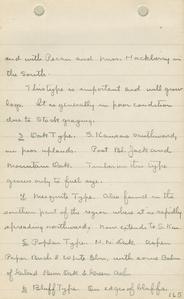 and with Pecan and Miss. Hackberry in
the South.
This type is important and will grow
logs. It is generally in poor condition
due to stock grazing.
Oak Type. S. Kansas southward,
on poor uplands. Post Bl. Jack and
Mountain Oak. Timber in this type
grows only to fuel size.
Mesquite Type. Also found in the
southern part of the region where it is rapidly
spreading northward. Now extends to S. Kan.
Poplar Type. N. N. Dak. Aspen
Paper Birch & White Elm, with some Balm
of Gilead Elm Oak & Green Ash
Bluff Type. On edges of bluffs.
165